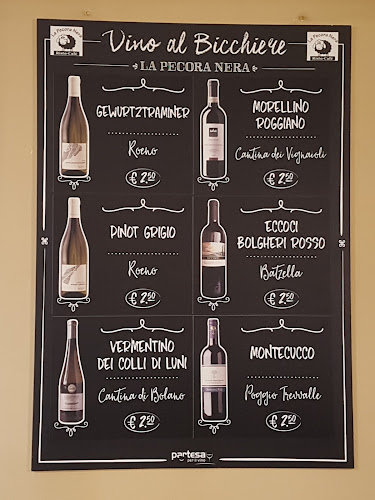 La Pecora Nera
Risto-Cafè
Vino al Bicchiere
LA PECORA NERA
La Pecora Nera
Risto-Cafè
GEWURTZTRAMINER
Roeno
€ 2.50
MORELLINO
ROGGIANO
Cantina dei Vignaioli
€ 2.50
PINOT GRIGIO
Roeno
€ 2.50
ECCOCI
BOLGHERI ROSSO
Batzella
€ 2.50
VERMENTINO
DEI COLLI DI LUNI
Cantina di Bolano
€ 2.50
MONTECUCCO
Poggio Trevvalle
€ 2.50
partesa
per il vino